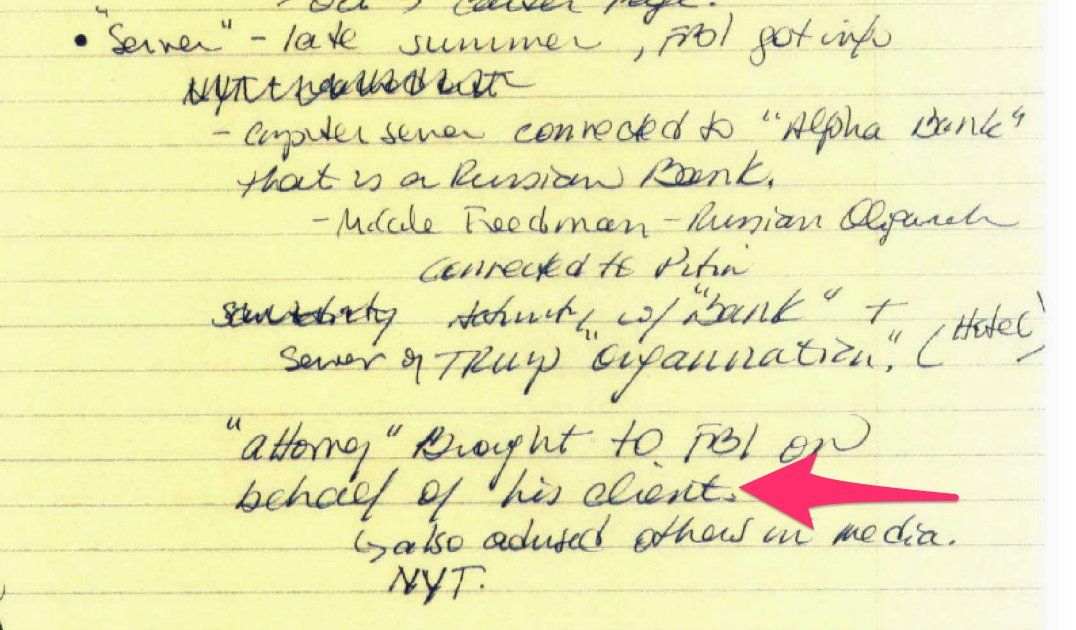 Page.
• "Server" - late summer, FBI got info
NYT
- Computer server connected to "Alpha Bank"
that is a Russian Bank.
- Freedman - Russian Oligarch
connected to Putin
activity w/ "Bank" +
Server of TRUMP "organization". (Hotel)
"attorney" Brought to FBI on
behalf of his client.
↳ also advised others in media.
NYT.